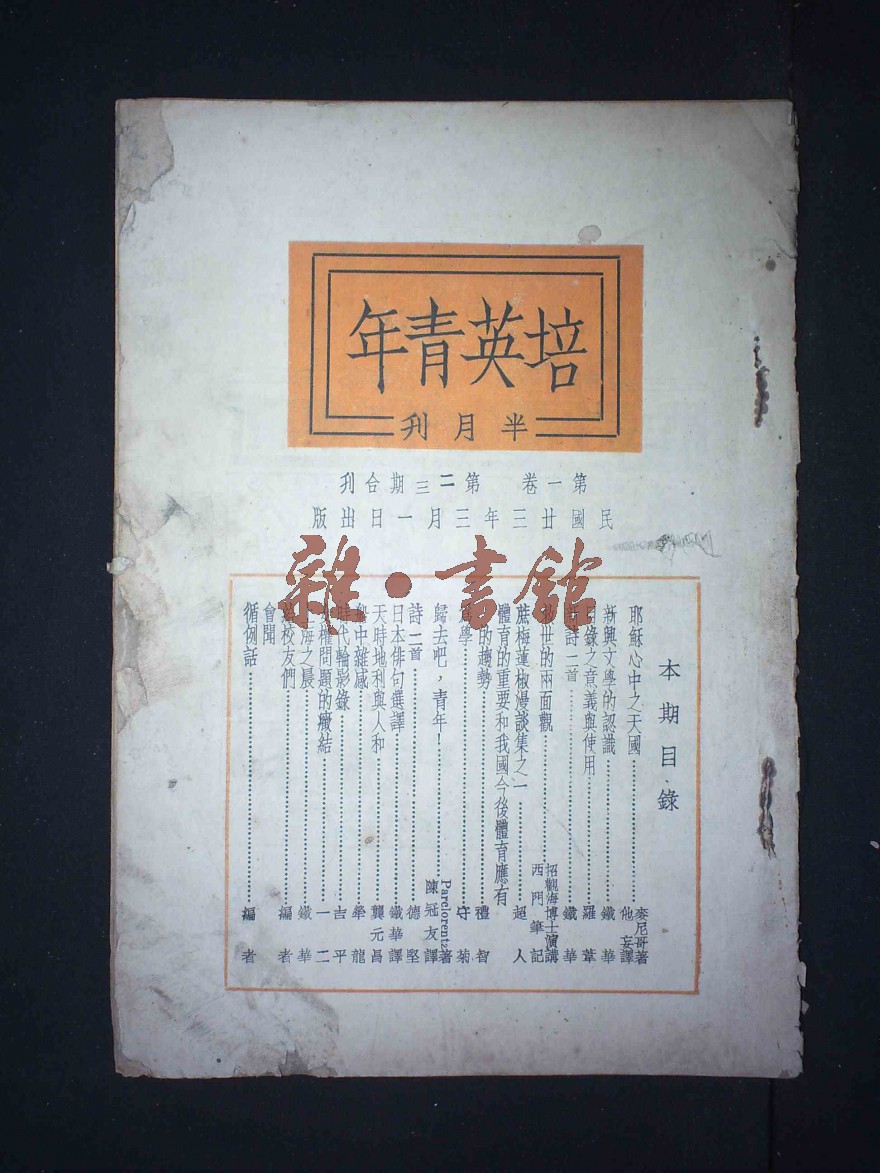 培英青年
半月刊
第一卷 第二三期合刊
民國廿三年三月一日出版
雜·書館
本期目錄
耶穌心中之天國 麥尼哥著 他妄譯
新興文學的認識 鐵華
目錄之意義與使用 羅葦
新詩二首 鐵華
世的兩面觀 招觀海博士演講 西門筆記
蔗梅蓮椒漫談集之一 超人
體育的重要和我國今後體育應有
的趨勢 禮智
學 守菊
歸去吧，青年！ Parelorentz著 陳冠友譯
詩二首 德堅
日本俳句選譯 鐵華譯
天時地利與人和 龔元昌
船中雜感 犖龍
時代輪影錄 吉平
權問題的癥結 一二
海之晨 鐵華
校友們 編者
會聞
循例話 編者